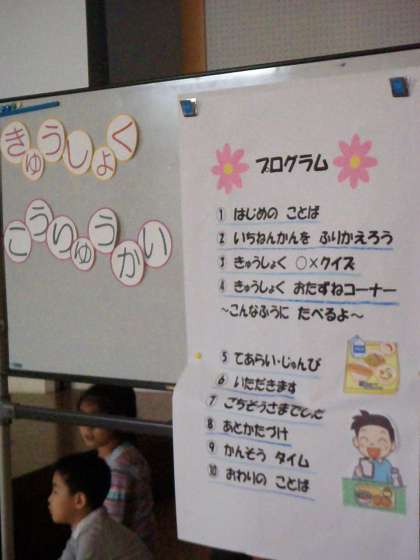 きゅうしょく
こうりゅうかい
プログラム
① はじめの ことば
② いちねんかんを ふりかえろう
③ きゅうしょく ○×クイズ
④ きゅうしょく おたずねコーナー
～こんなふうに たべるよ～
⑤ てあらい・じゅんび
⑥ いただきます
⑦ ごちそうさまでした
⑧ あとかたづけ
⑨ かんそう タイム
⑩ おわりの ことば